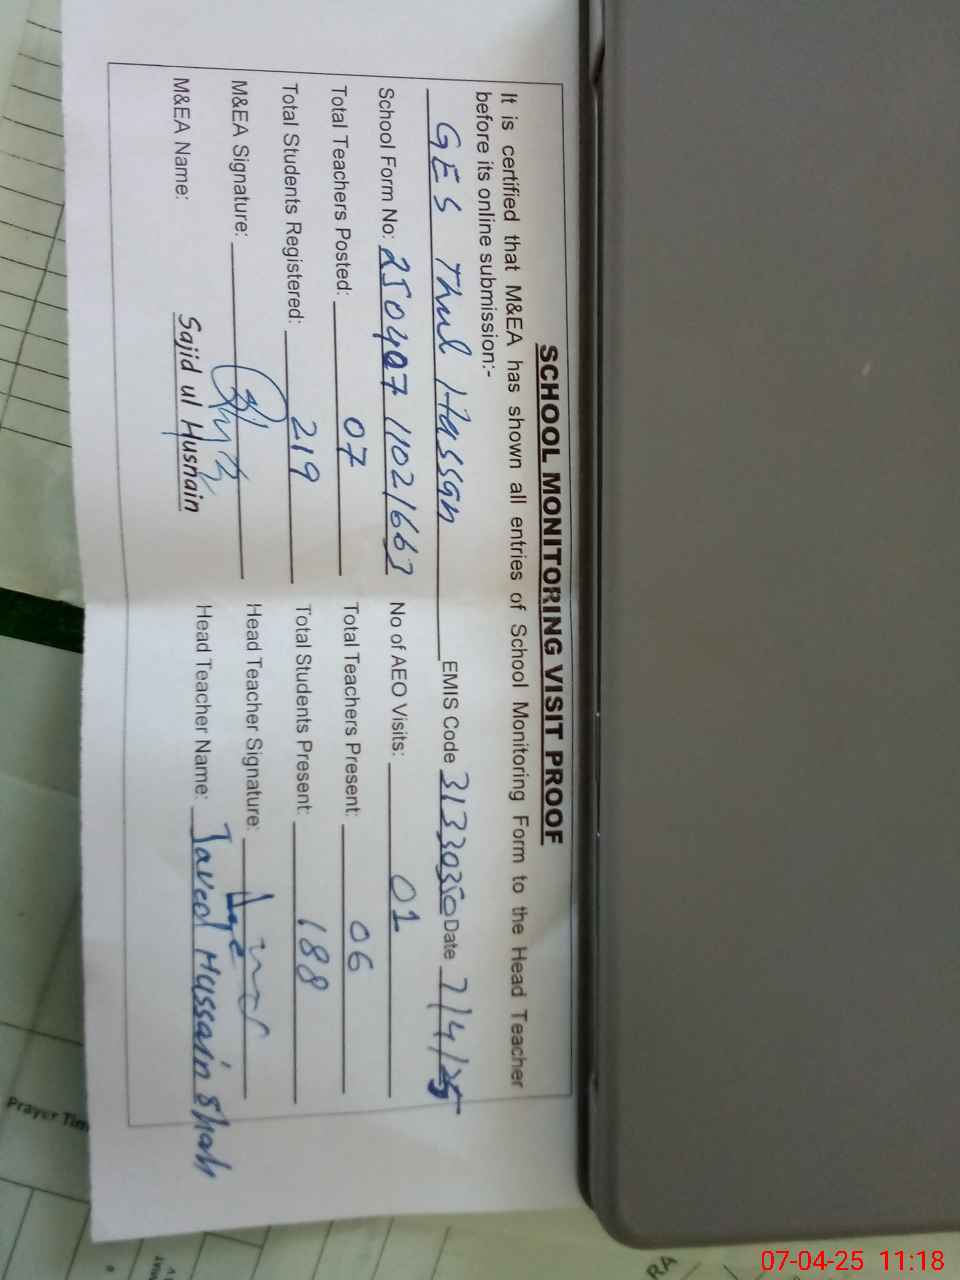 SCHOOL MONITORING VISIT PROOF
It is certified that M&EA has shown all entries of School Monitoring Form to the Head Teacher
before its online submission:-
GES Thul Hassan EMIS Code 31330350 Date 7/4/25
School Form No: 25040711021663 No of AEO Visits: 01
Total Teachers Posted: 07 Total Teachers Present: 06
Total Students Registered: 219 Total Students Present: 188
M&EA Signature: Head Teacher Signature:
M&EA Name: Sajid ul Husnain Head Teacher Name: Javed Hussain Shah
Prayer Tim
RA
07-04-25 11:18